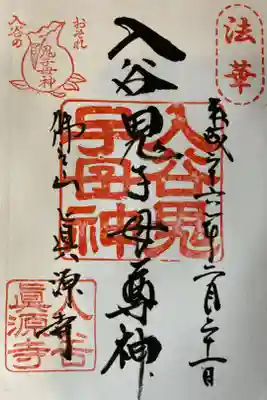 法華
平成二十六年六月二十一日
入谷鬼子母尊神
入谷鬼
子母神
佛立山 真源寺
おそれ
入谷の
鬼子母神
入谷
眞源寺